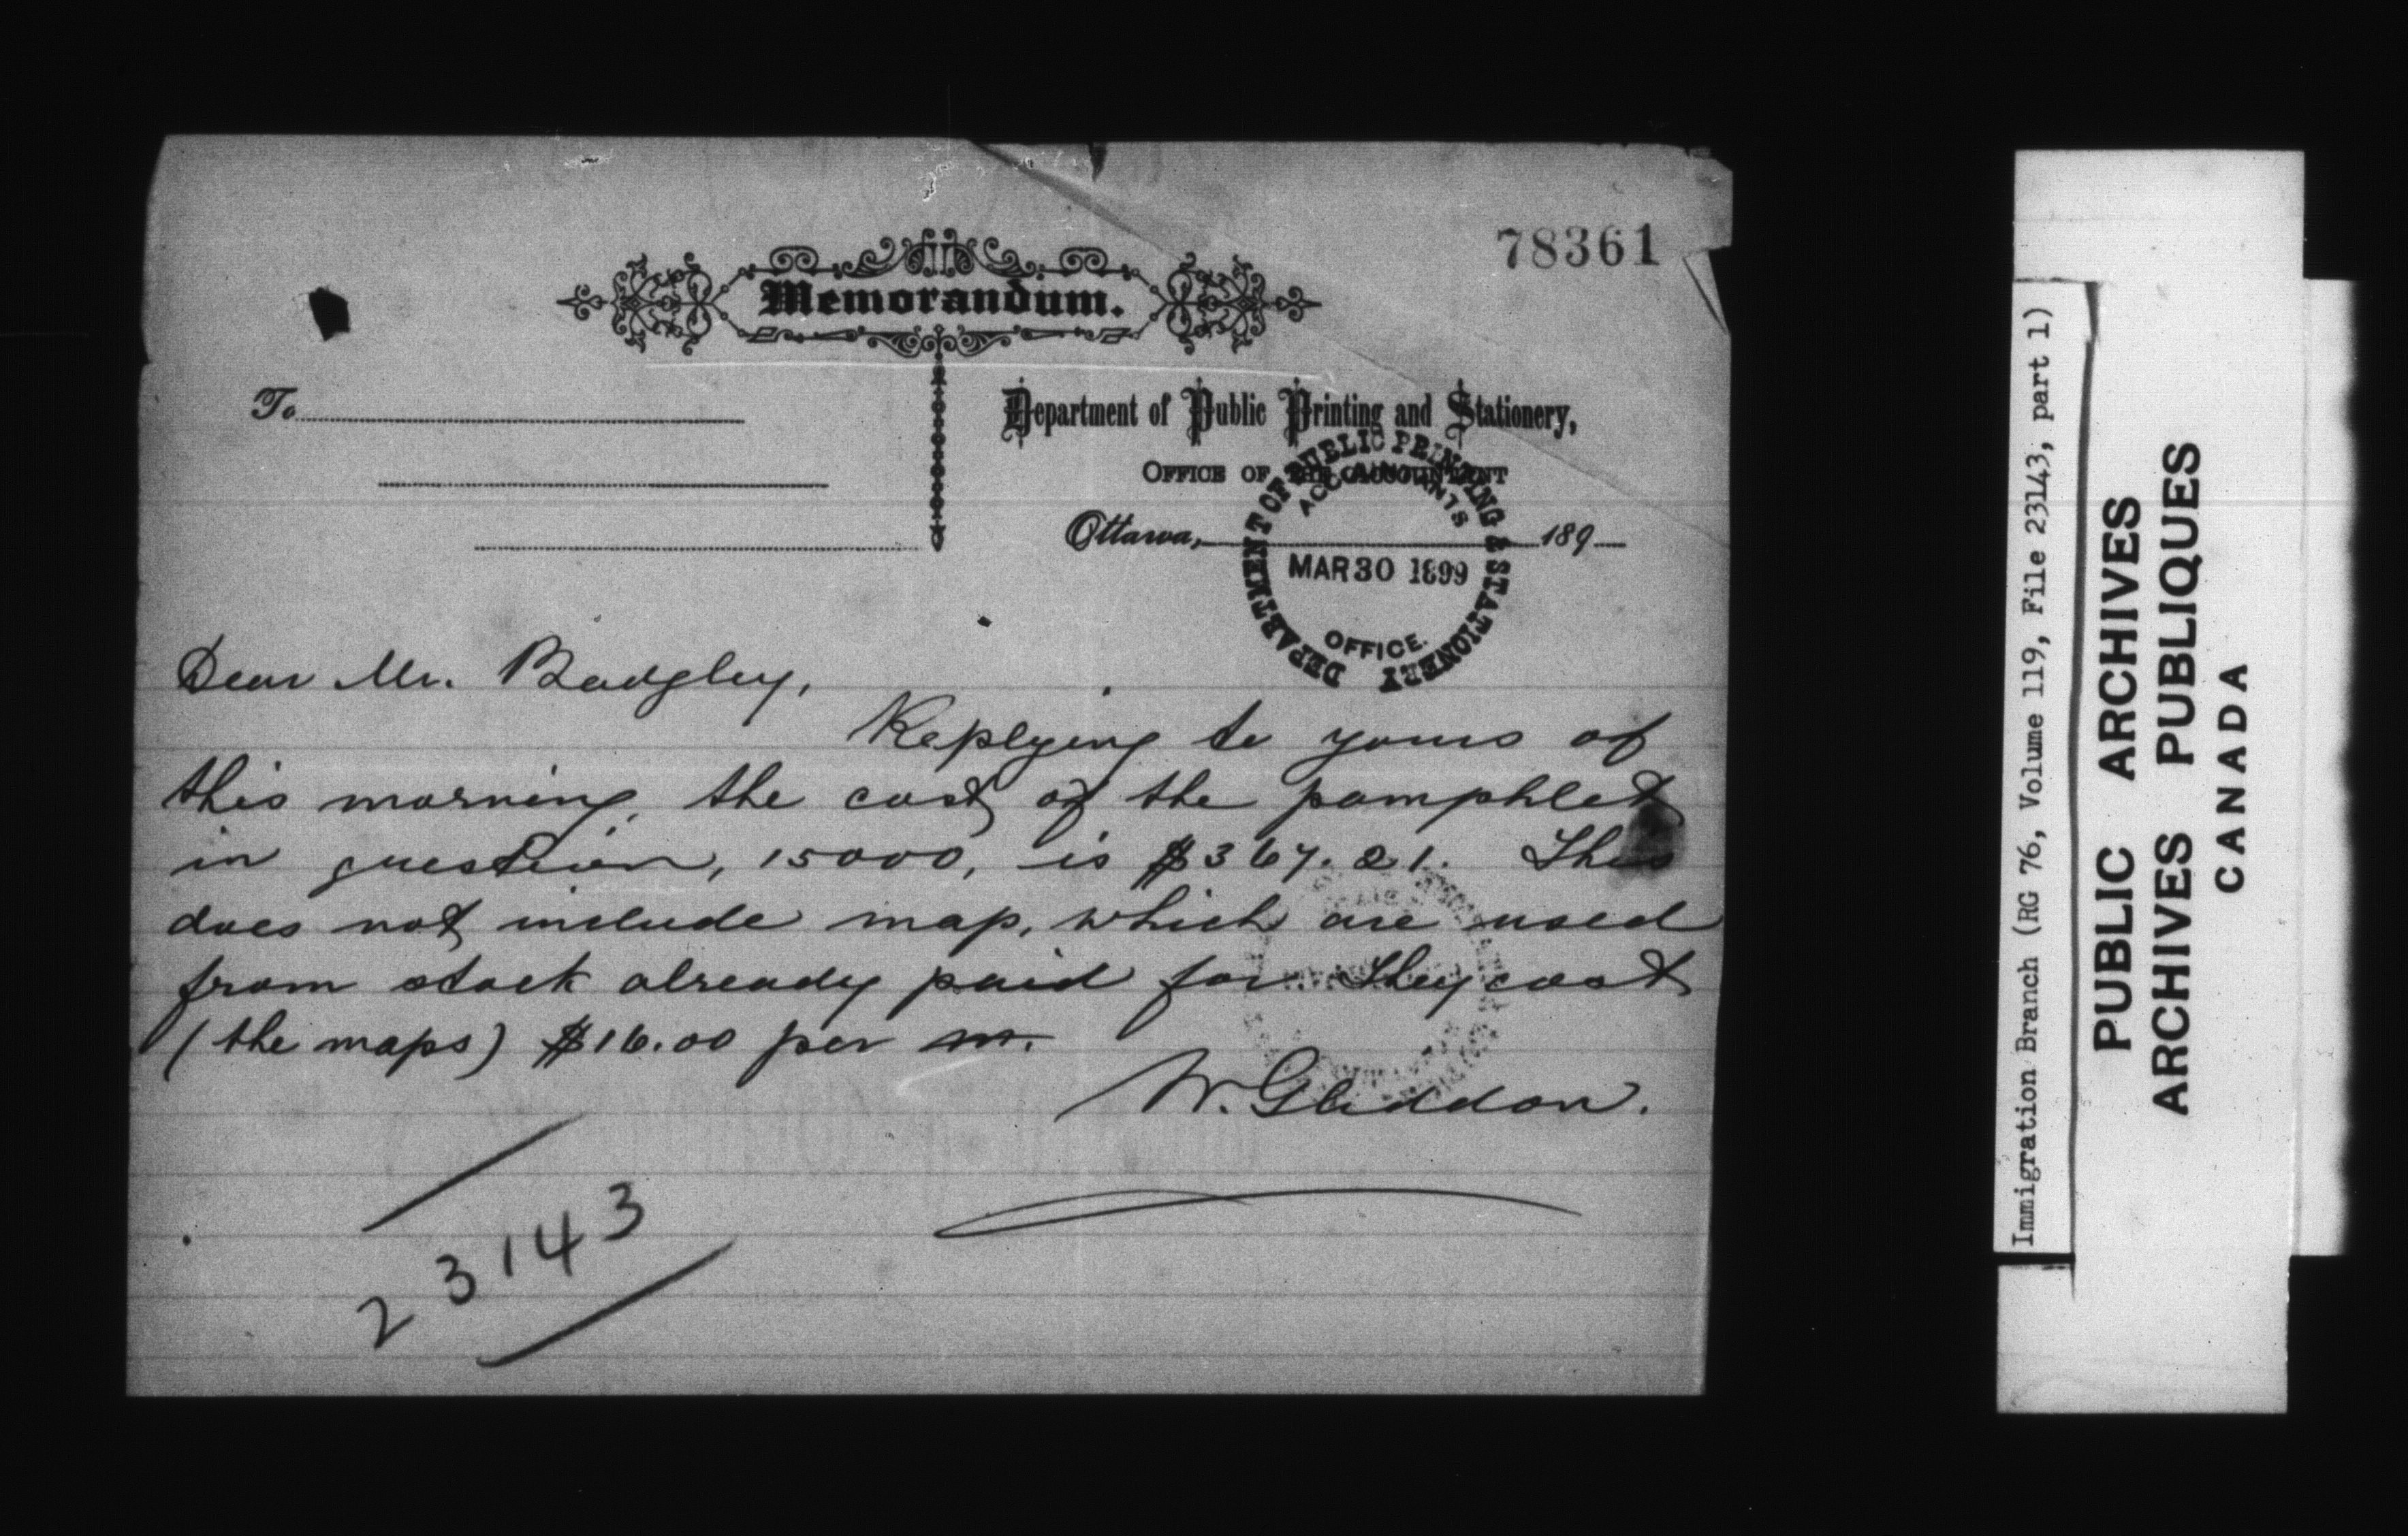 78361
Memorandum.
To
Department of Public Printing and Stationery,
OFFICE OF THE ACCOUNTANT
Ottawa, 189
DEPARTMENT OF PUBLIC PRINTING & STATIONERY
ACCOUNTANTS
MAR 30 1899
OFFICE.
Dear Mr. Badgley,
Replying to yours of
this morning, the cost of the pamphlet
in question, 15000, is $367.21. This
does not include map, which are used
from stock already paid for. They cost
(the maps) $16.00 per m.
W. Gliddon.
23143
Immigration Branch (RG 76, Volume 119, File 23143, part 1)
PUBLIC ARCHIVES
ARCHIVES PUBLIQUES
CANADA